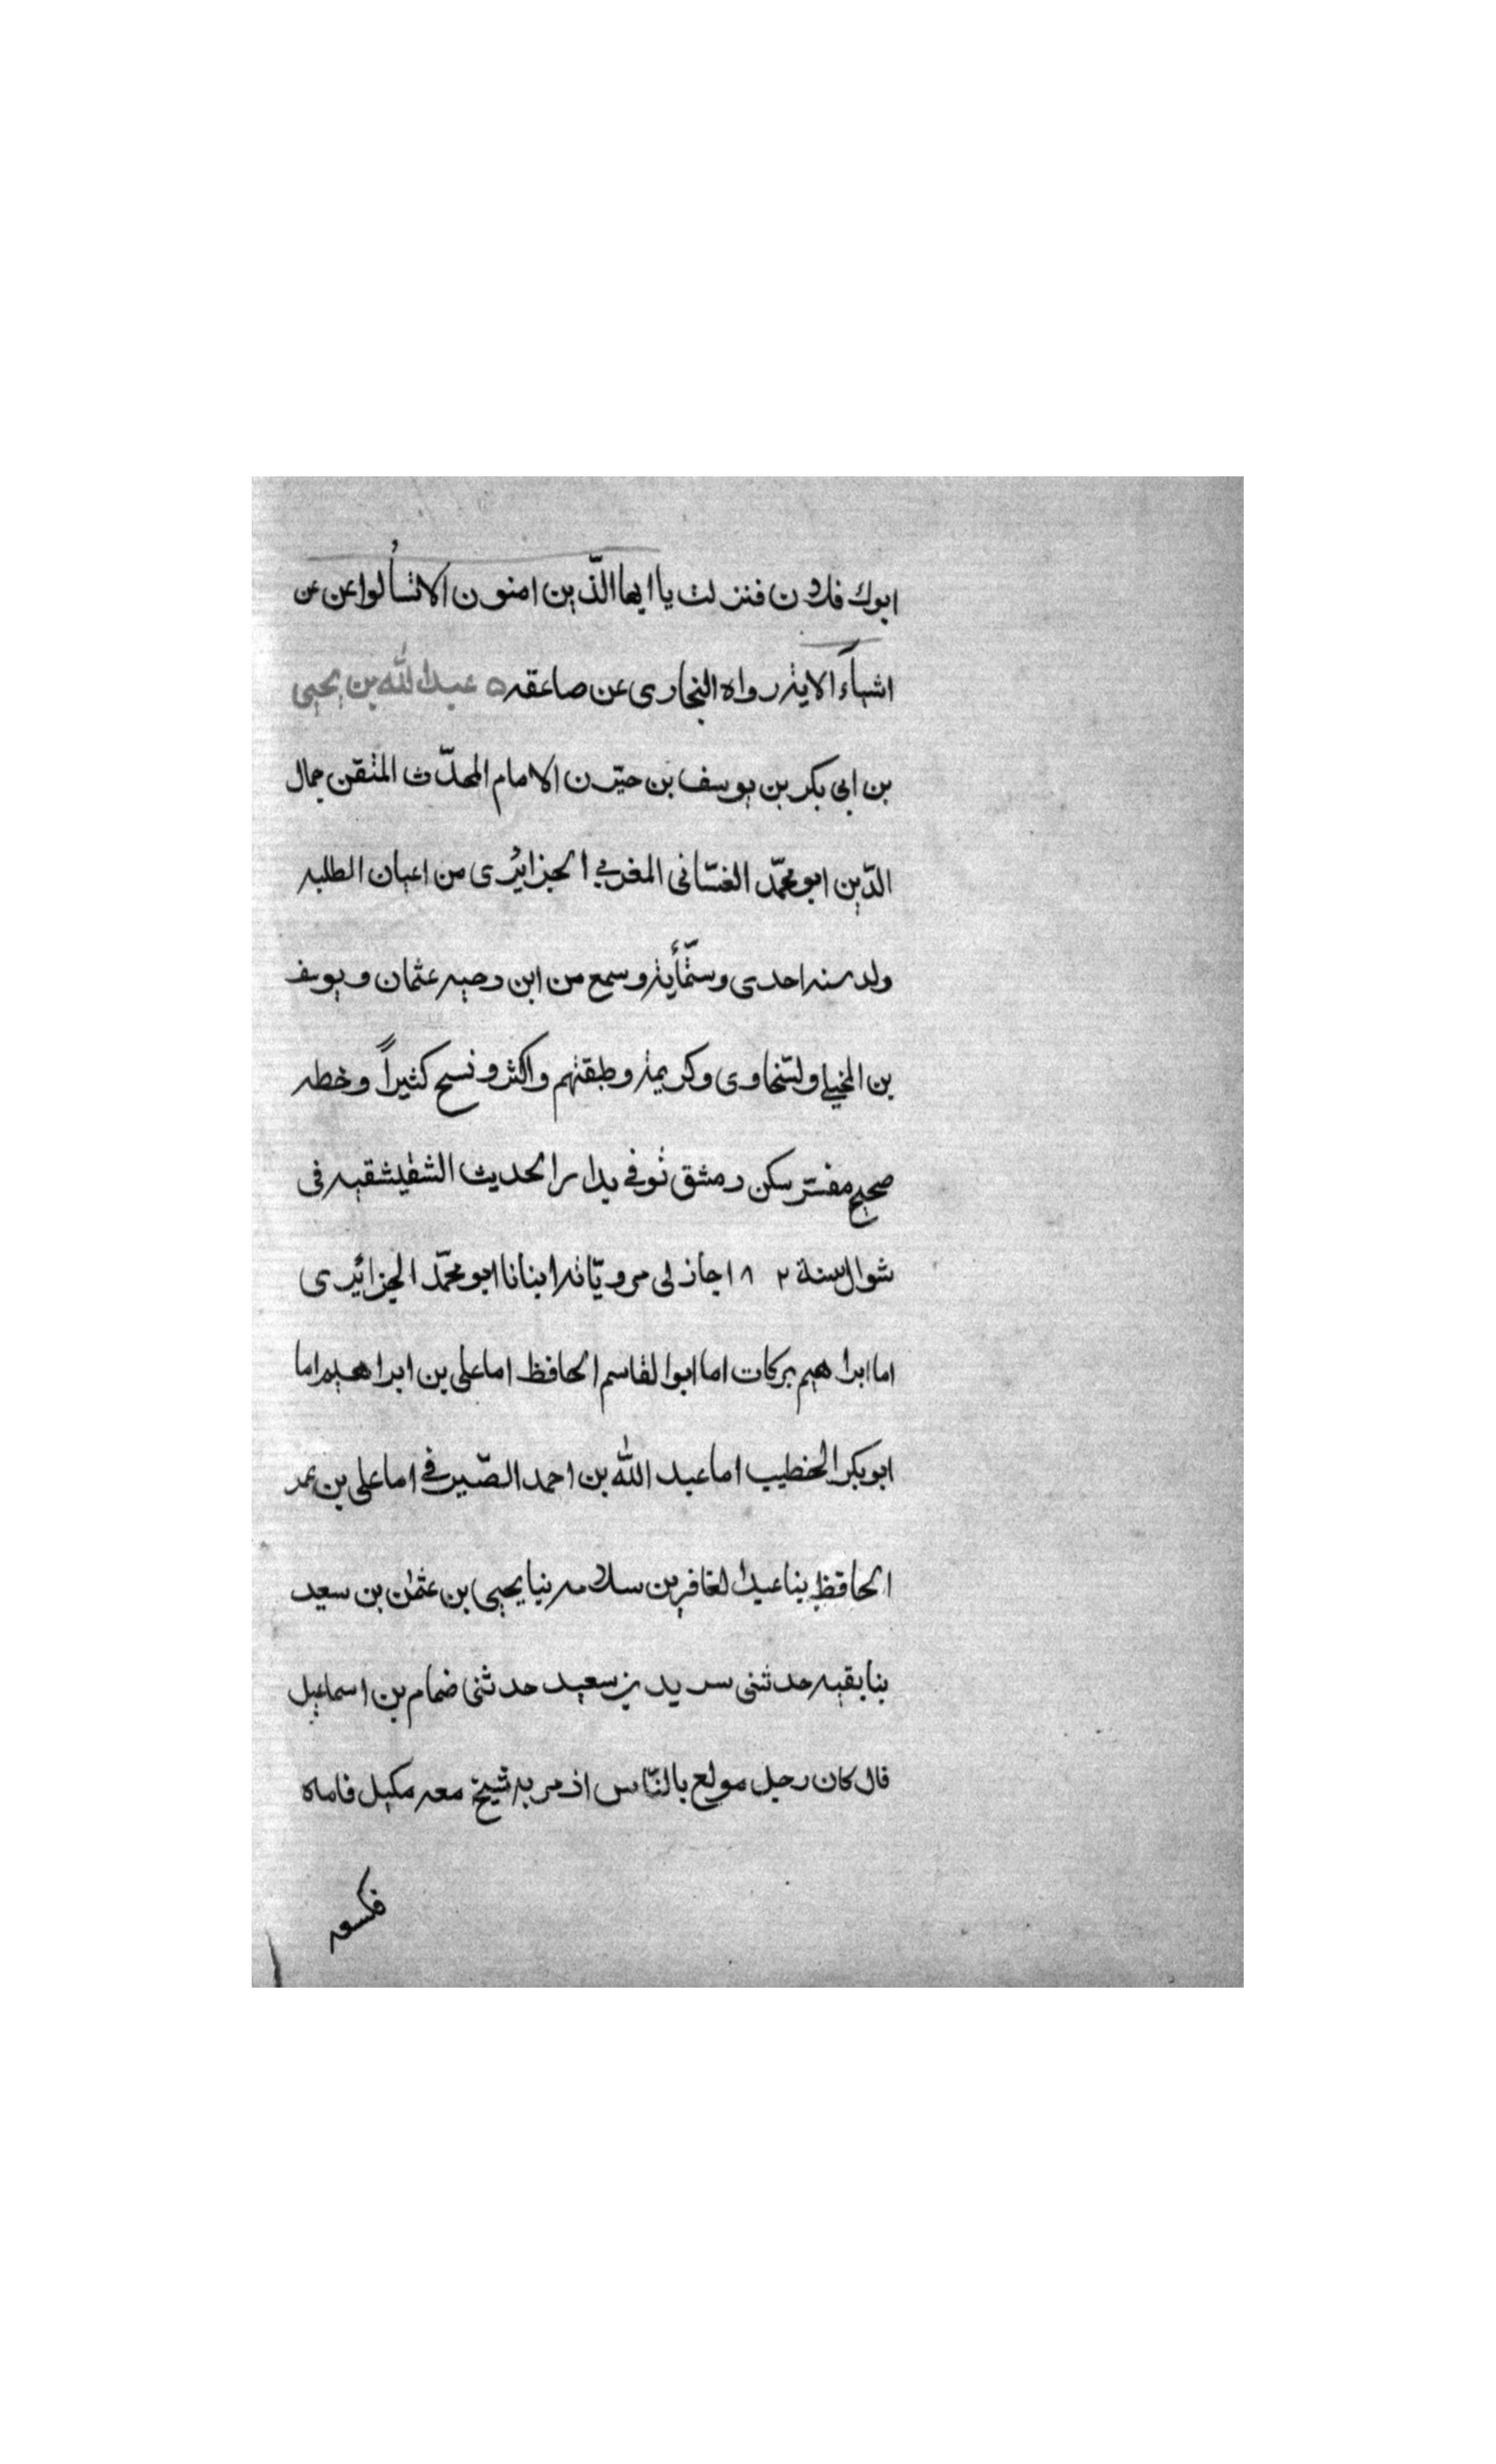 ابوك فلان فنزلت يا ايها الذّين امنون الا تسألوا عن عن
اشياءً الاية رواه البخارى عن صاعقه ٥ عبد الله بن يحيى
بن ابى بكر بن يوسف بن حيّون الامام المحدّث المتقن جمال
الدّين ابو محمّد الغسّانى المغربي الجزائرى من اعيان الطلبه
ولد سنه احدى وستّمأية وسمع من ابن دحيه عثمان ويوسف
بن المخيلي ولسّخاوى وكريمة وطبقتهم واكثر ونسخ كثيراً وخطه
صحيح مفسّر سكن دمشق توفي بدار الحديث الشقيشقيه فى
شوال سنة ٨٢ اجاز لى مرويّاته انبانا ابو محمّد الجزائرى
اما ابراهيم بركات اما ابوا لقاسم الحافظ اما على بن ابراهيم اما
ابو بكر الخطيب اما عبد الله بن احمد الصّيرفي اما على بن عمر
الحافظ بنا عبد الغافر بن سلامه نبا يحيى بن عثمن بن سعيد
بنا بقيه حدثنى سريد بن سعيد حدثنى ضمام بن اسماعيل
قال كان رجل مولع بالنّاس اذ مر به شيخ معه مكيل فاماه
فكسعه